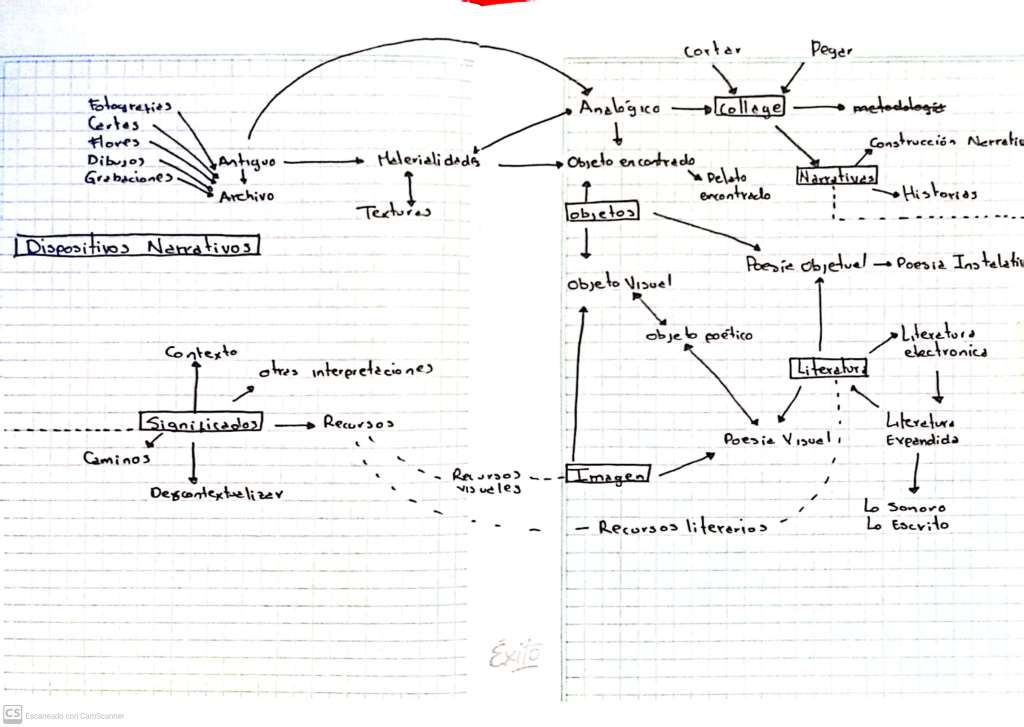 Cortar
Pegar
Fotografías
Cartas
Flores
Dibujos
Grabaciones
Antiguo
Archivo
Materialidades
Texturas
Analógico
Collage
metodología
Objeto encontrado
Relato
encontrado
Construcción Narrativ
Narrativas
Historias
objetos
Dispositivos Narrativos
Poesía Objetual
Poesía Instalativ
Objeto Visual
objeto poético
Literatura
Literatura
electronica
Contexto
otras interpretaciones
Significados
Recursos
Caminos
Descontextualizar
Poesía Visual
Literatura
Expandida
Recursos
visuales
Imagen
Lo Sonoro
Lo Escrito
Recursos literarios
Éxito
CS
Escaneado con CamScanner